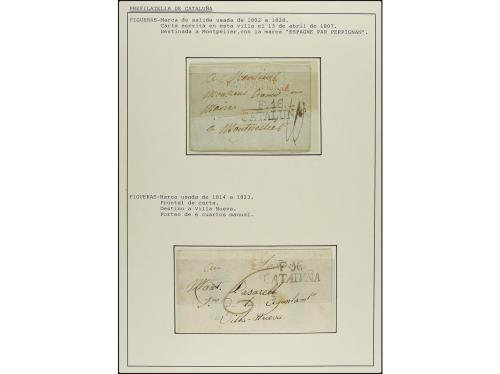 PREFILATELIA DE CATALUÑA
FIGUERAS-Marca de salida usada de 1802 a 1828.
Carta escrita en esta villa el 13 de abril de 1807.
Destinada a Montpelier,con la marca "ESPAGNE PAR PERPIGNAN".
a Monsieur
Monsieur
Maire
CATALUÑA
a Montpellier
FIGUERAS-Marca usada de 1814 a 1823.
Frontal de carta.
Destino a Villa Nueva.
Porteo de 6 cuartos manual.
CATALUÑA
Villa-Nueva